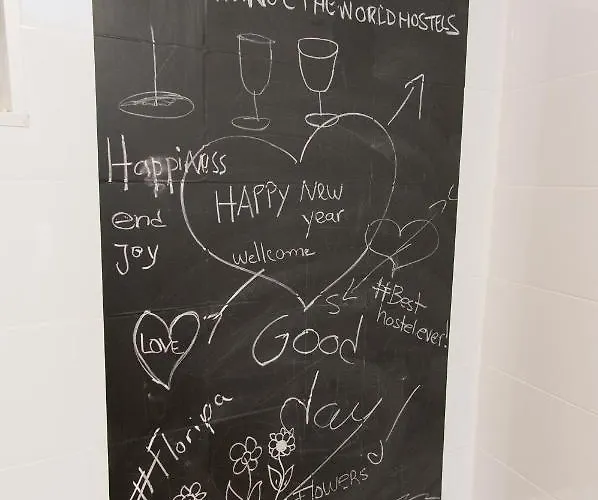 THE WORLD HOSTELS
Happiness
end
Joy
HAPPY New
year
wellcome
#Best
hostel ever!
S
LOVE
Good
day!
#Floripa
Flowers